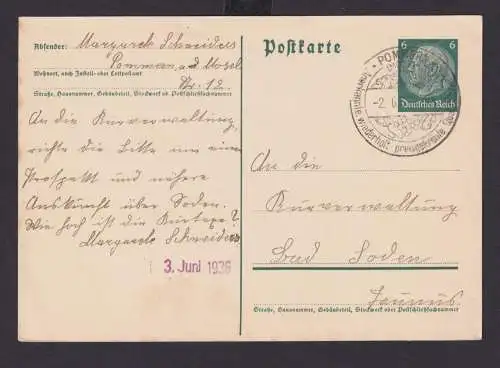 Absender: Margarete Schneiders
Pommern a/d Mosel
Wohnort, auch Zustell- oder Leitpostamt
Nr. 92
Straße, Hausnummer, Gebäudeteil, Stockwerk od. Postschließfachnummer
An die Kurverwaltung,
richte die Bitte um einen
Prospekt und nähere
Auskunft über Soden.
Wie hoch ist die Kurtaxe?
Margarete Schneiders
3. Juni 1936
Postkarte
6 6
Deutsches Reich
POM
-2. 6
wiederholt preisgekrönte
An die
Kurverwaltung
Bad Soden
Taunus
Straße, Hausnummer, Gebäudeteil, Stockwerk oder Postschließfachnummer